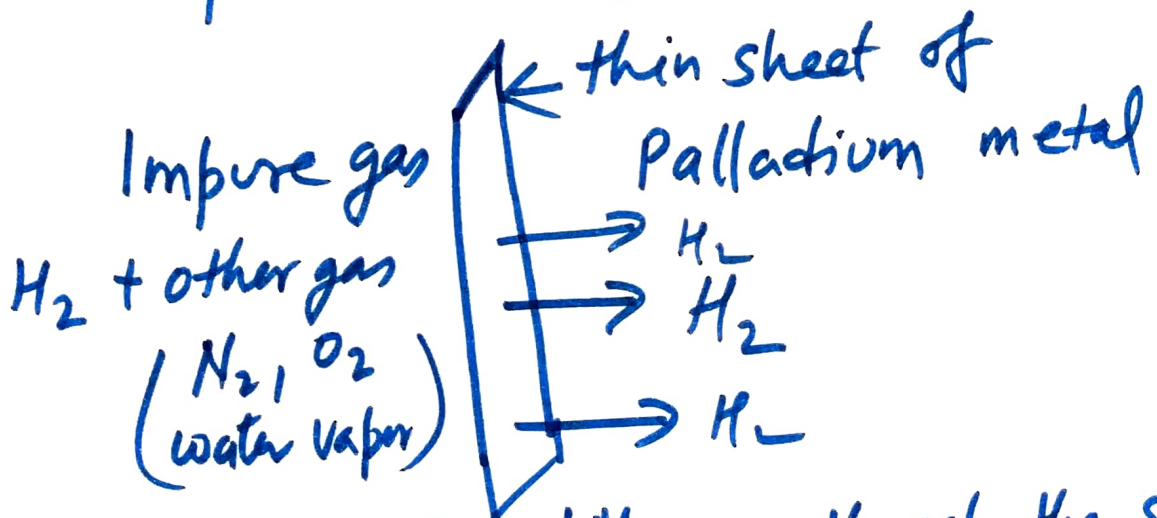 thin sheet of
Palladium metal
Impure gas
H₂ + other gas
(N₂, O₂
water vapor)
H₂
H₂
H₂
through the